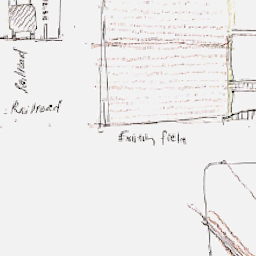 Railroad
Railroad
Existing field